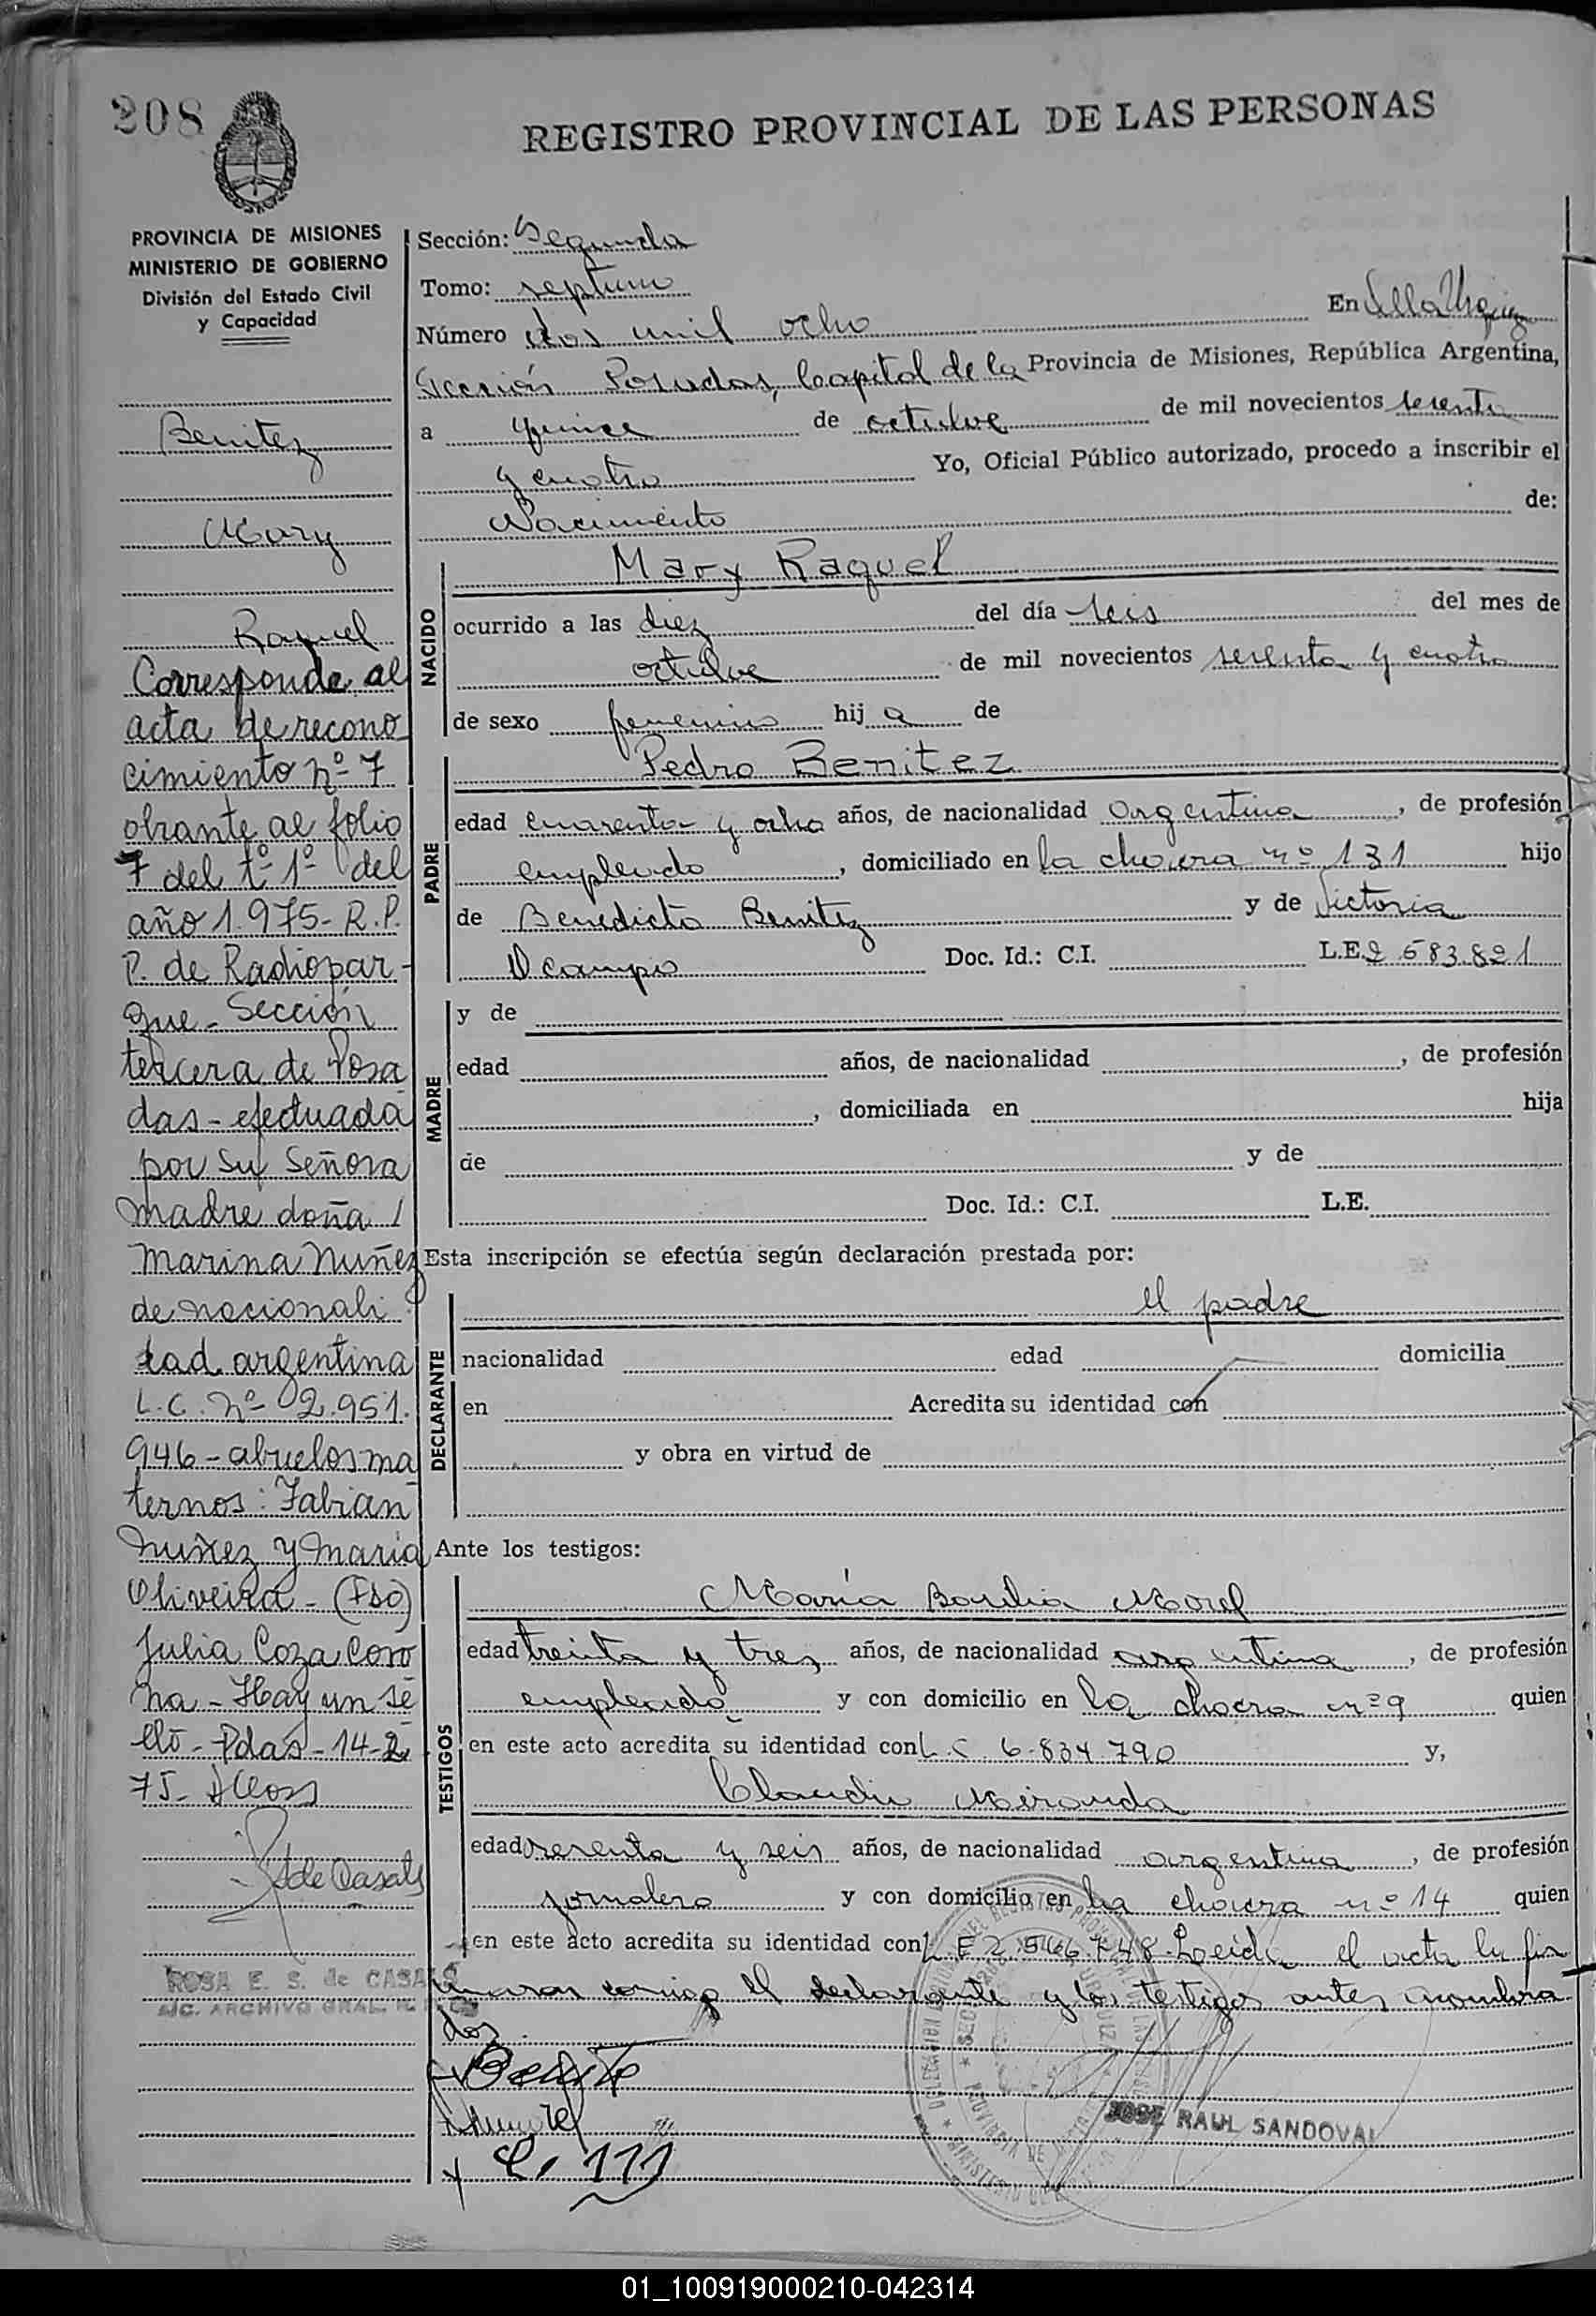 208
REGISTRO PROVINCIAL DE LAS PERSONAS
PROVINCIA DE MISIONES
MINISTERIO DE GOBIERNO
División del Estado Civil
y Capacidad
Benitez
Mary
Raquel
Corresponde al
acta de recono
cimiento nº 7
obrante al folio
7 del tº 1º del
año 1.975- R.P.
P. de Radiopar-
que- Sección
tercera de Posa
das- efectuada
por su Señora
madre doña /
Marina Nuñez
de nacionali
dad argentina
L.C. nº 02.951.
946 - abuelos ma
ternos: Fabian
Nuñez y Maria
Oliveira - (Fdo)
Julia Coza Coro
na - Hay un se
llo - Pdas - 14-2-
75-
de Casals
ROSA E. S. de CASALS
Sección: Segunda
Tomo: septimo
Número dos mil ocho En Villa Urquiza
Sección Posadas, Capital de la Provincia de Misiones, República Argentina,
a quince de octubre de mil novecientos sesenta
y cuatro Yo, Oficial Público autorizado, procedo a inscribir el
Nacimiento de:
NACIDO
Mary Raquel
ocurrido a las diez del día seis del mes de
octubre de mil novecientos sesenta y cuatro
de sexo femenino hij a de
PADRE
Pedro Benitez
edad cuarenta y ocho años, de nacionalidad argentina, de profesión
empleado, domiciliado en la chacra nº 131 hijo
de Benedicto Benitez y de Victoria
Ocampo Doc. Id.: C.I. L.E. 2.583.821
MADRE
y de
edad años, de nacionalidad , de profesión
, domiciliada en hija
de y de
Doc. Id.: C.I. L.E.
Esta inscripción se efectúa según declaración prestada por:
DECLARANTE
el padre
nacionalidad edad domicilia
en Acredita su identidad con
y obra en virtud de
Ante los testigos:
TESTIGOS
María Morel
edad treinta y tres años, de nacionalidad argentina, de profesión
empleada y con domicilio en la chacra nº 9 quien
en este acto acredita su identidad con L.C. 6.834.790 y,
Claudio Miranda
edad sesenta y seis años, de nacionalidad argentina, de profesión
jornalero y con domicilio en la chacra nº 14 quien
en este acto acredita su identidad con L.E. Leida el acta la fir
maron conmigo el declarante y los testigos antes nombra
dos.
JOSE RAUL SANDOVAL
01_100919000210-042314